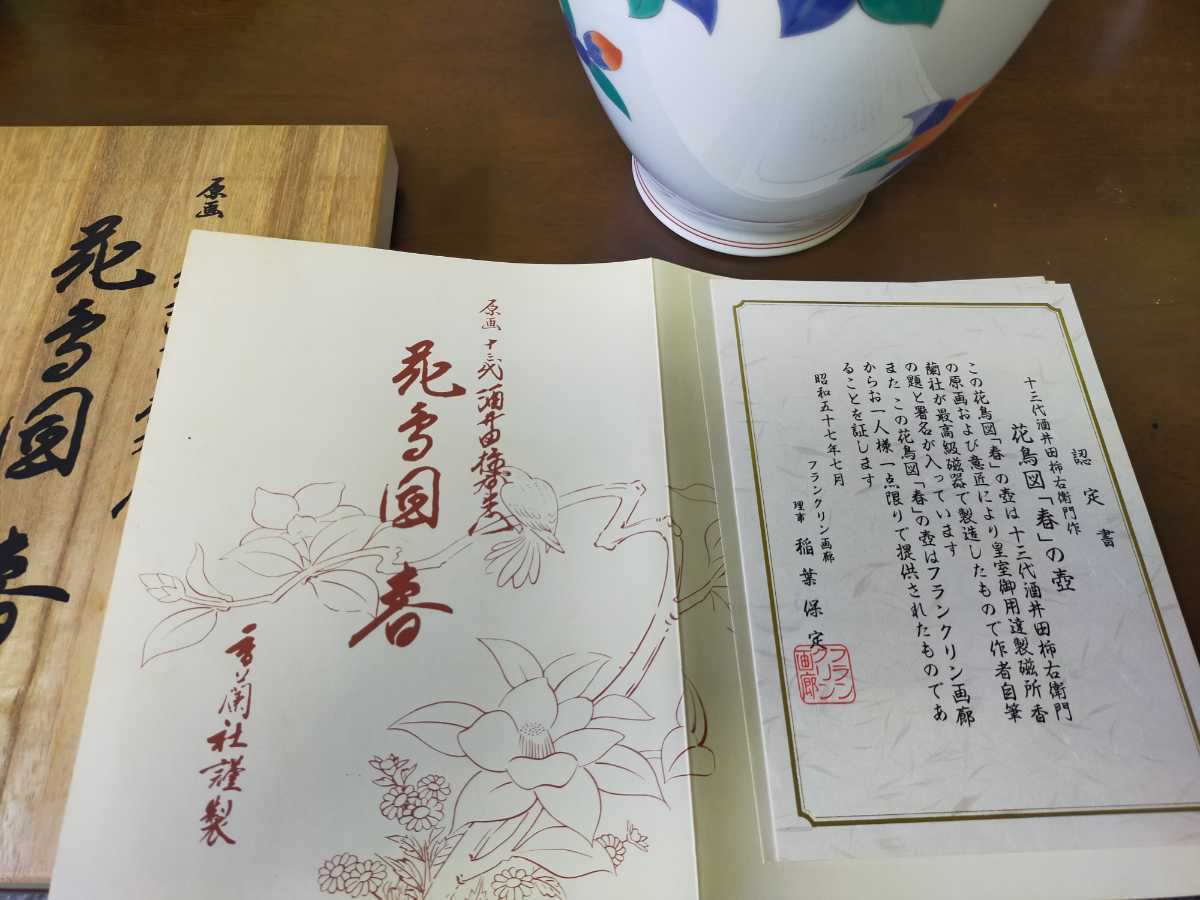 原画
花鳥図
春
原画 十三代 酒井田柿右衛門
花鳥図 春
香蘭社謹製
認定書
十三代酒井田柿右衛門作
花鳥図「春」の壺
この花鳥図「春」の壺は十三代酒井田柿右衛門
の原画および意匠により皇室御用達製磁所香
蘭社が最高級磁器で製造したもので作者自筆
の題と署名が入っています
また この花鳥図「春」の壺はフランクリン画廊
からお一人様一点限りで提供されたものであ
ることを証します
昭和五十七年七月
フランクリン画廊
理事 稲葉保定
フランクリン画廊